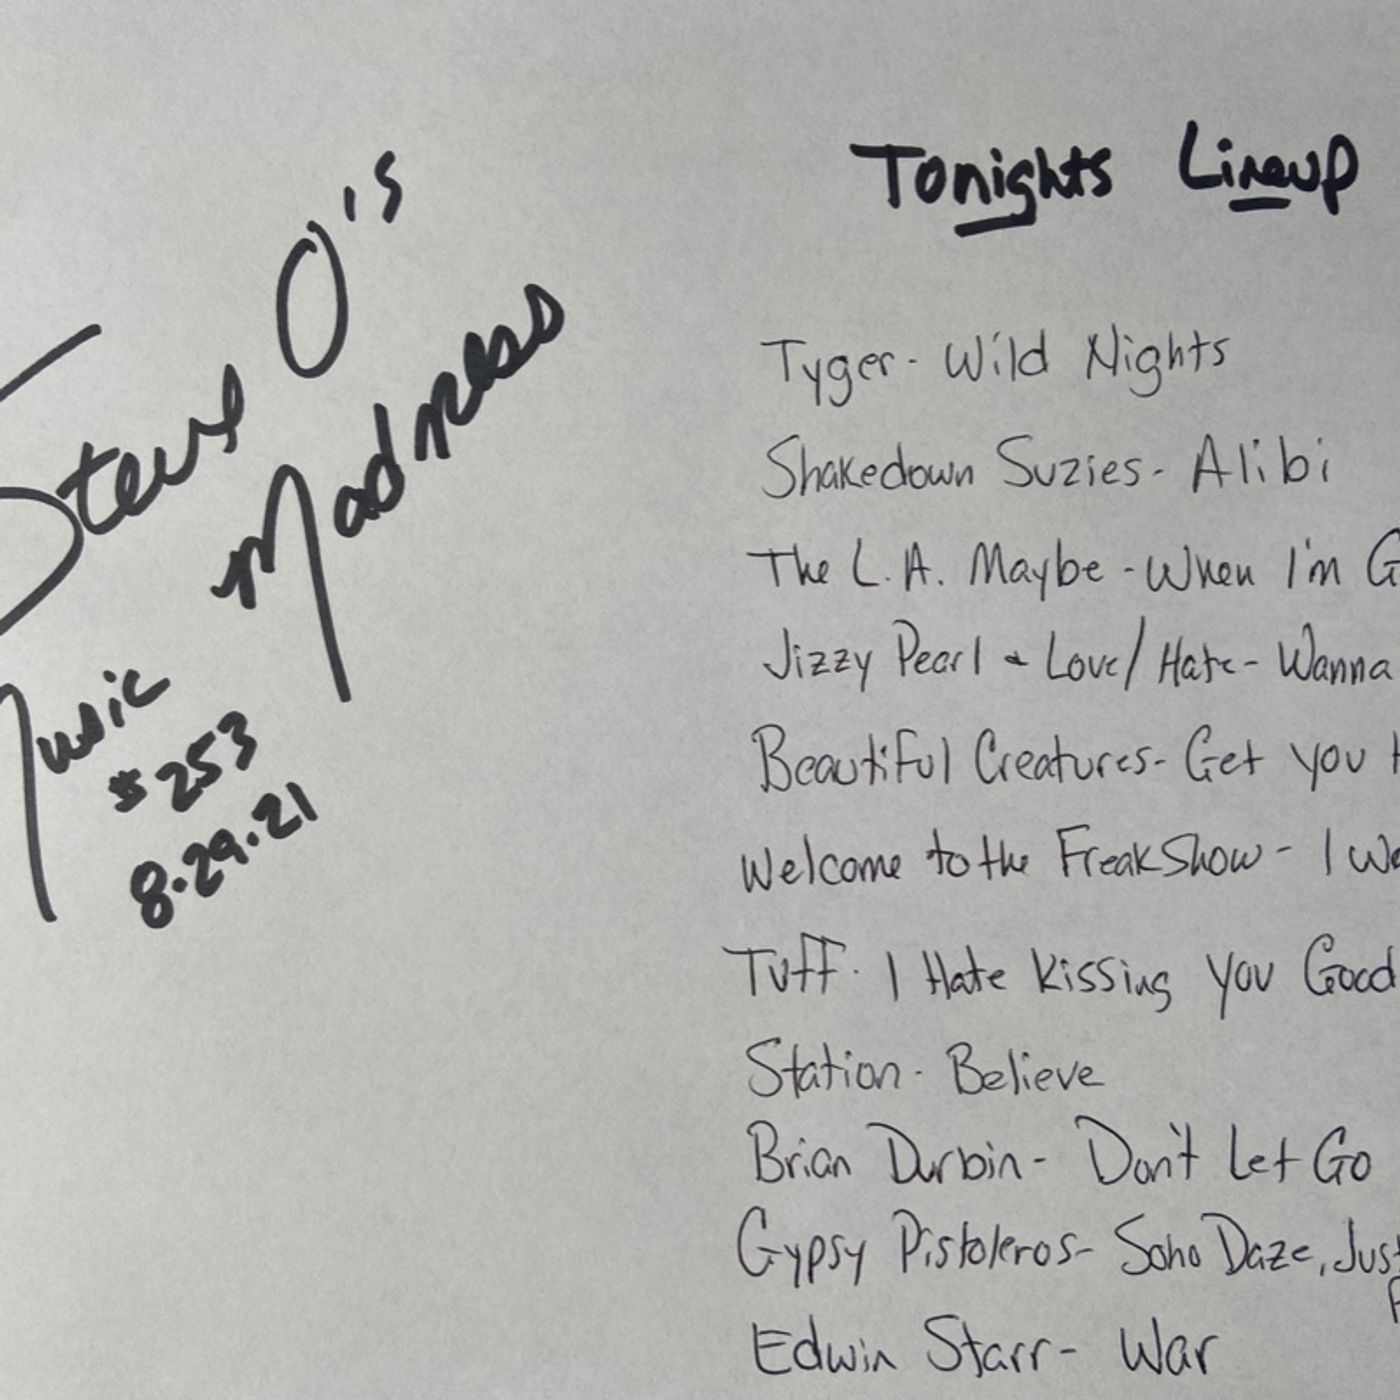 Steve O's
Madness
Music
#253
8.29.21
Tonights Lineup
Tyger- Wild Nights
Shakedown Suzies- Alibi
The L.A. Maybe - When I'm G
Jizzy Pearl & Love/Hate- Wanna
Beautiful Creatures- Get You H
Welcome to the FreakShow - I We
Tuff- I Hate Kissing You Good
Station- Believe
Brian Durbin- Don't Let Go
Gypsy Pistoleros- Soho Daze, Just
Edwin Starr- War